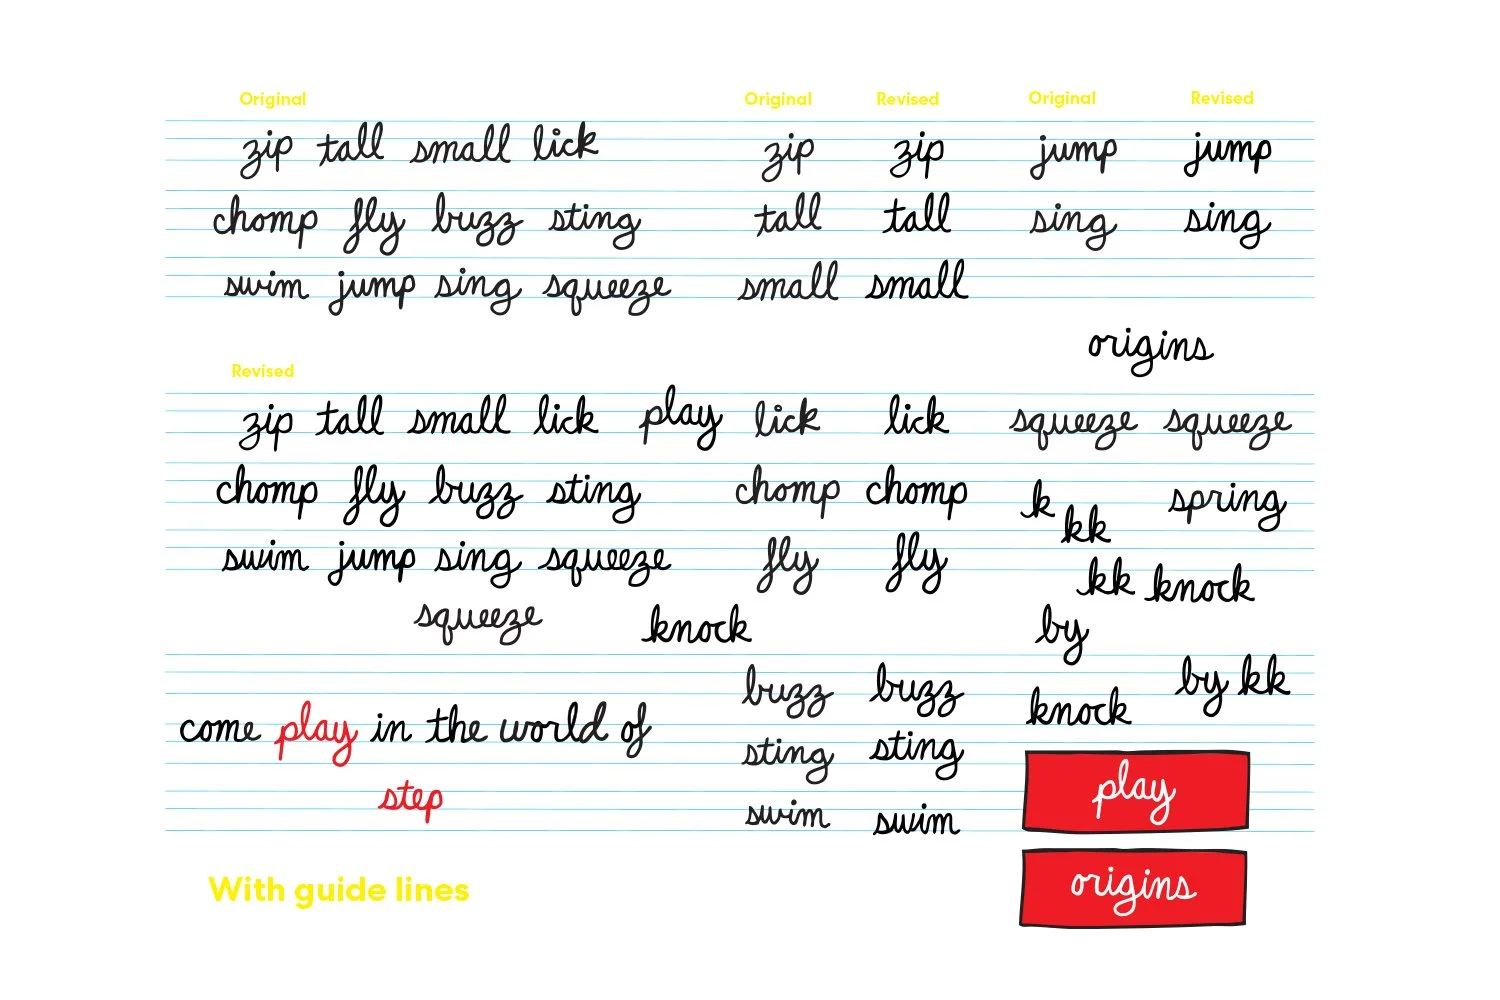 Original
zip tall small lick
chomp fly buzz sting
swim jump sing squeeze
Revised
zip tall small lick play
chomp fly buzz sting
swim jump sing squeeze
squeeze knock
come play in the world of
step
With guide lines
Original Revised
zip zip
tall tall
small small
lick lick
chomp chomp
fly fly
buzz buzz
sting sting
swim swim
Original Revised
jump jump
sing sing
origins
squeeze squeeze
k spring
kk
kk knock
by
by kk
knock
play
origins